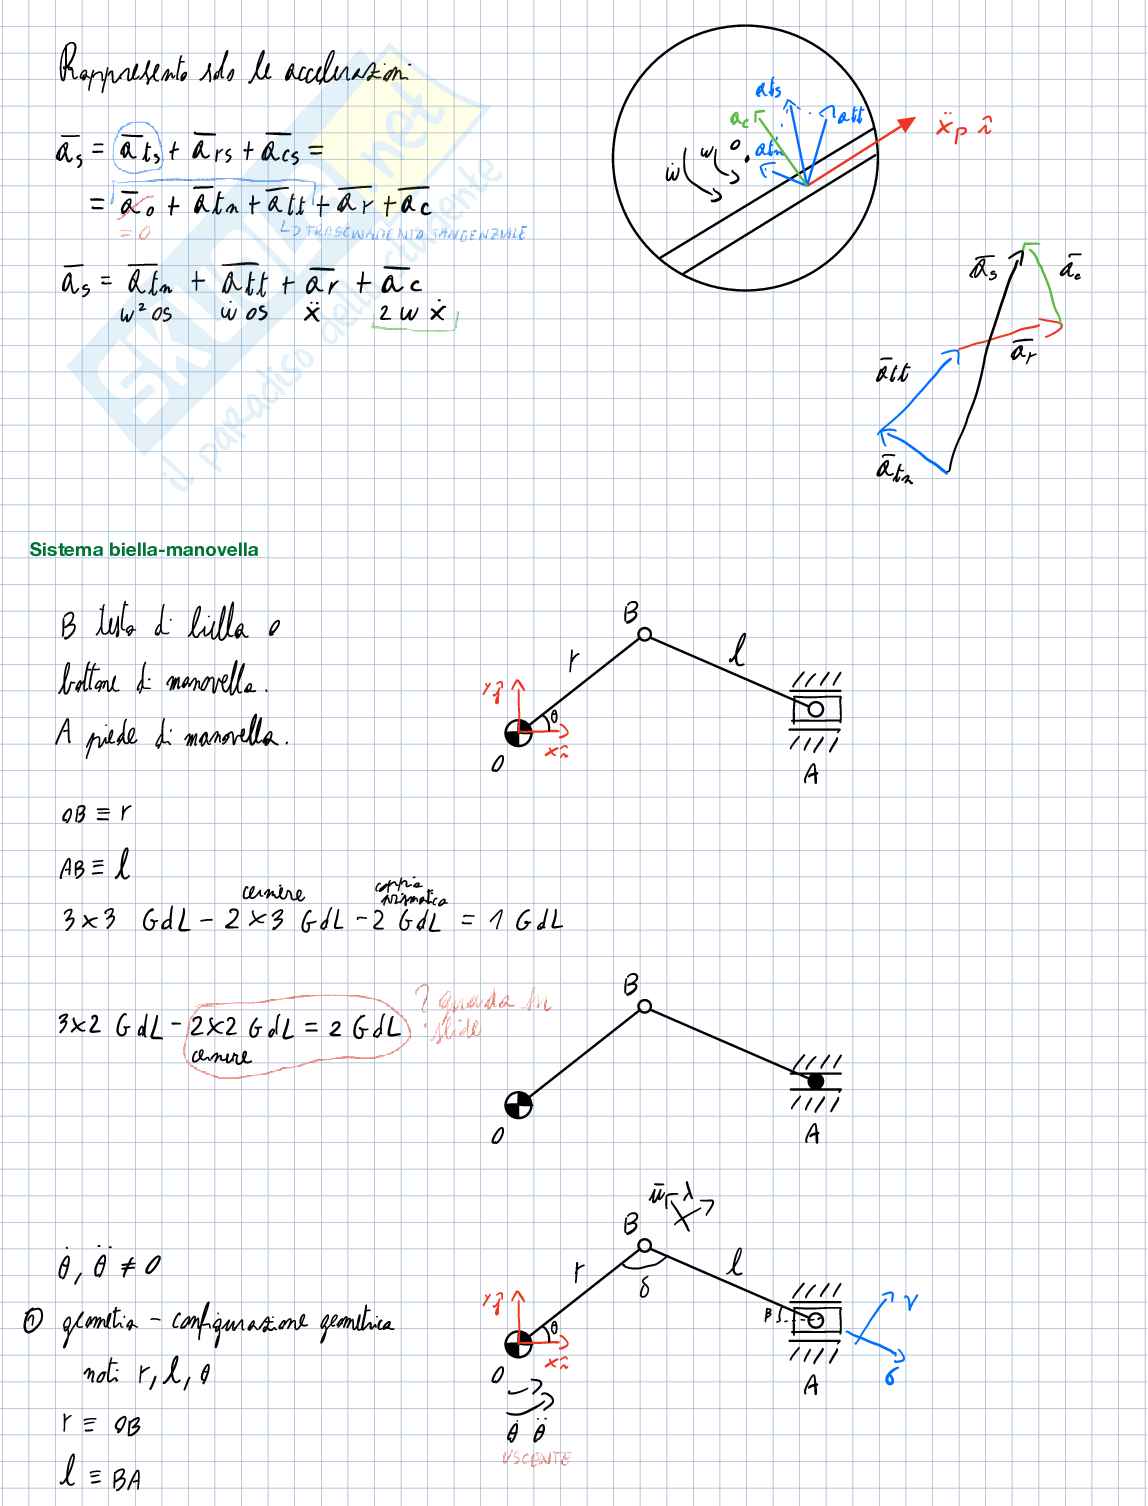 Rappresento solo le accelerazioni
a̅s = a̅ts + a̅rs + a̅cs =
= a̅o + a̅tn + a̅tt + a̅r + a̅c
= 0
↳ TRASCINAMENTO TANGENZIALE
a̅s = a̅tn + a̅tt + a̅r + a̅c
w² OS ẇ OS ẍ 2 w ẋ
ats
ac
att
atn
O
w
ẇ
ẍp î
a̅s
a̅c
a̅r
a̅tt
a̅tn
SKUOLA.net
il paradiso dello studente
Sistema biella-manovella
B testa di biella o
bottone di manovella.
A piede di manovella.
OB ≡ r
AB ≡ l
B
r
l
y ĵ
θ
x î
O
A
cerniere coppia prismatica
3×3 GdL - 2×3 GdL - 2 GdL = 1 GdL
3×2 GdL - 2×2 GdL = 2 GdL
cerniere
? guarda su
slide
B
O
A
θ̇, θ̈ ≠ 0
① geometria - configurazione geometrica
noti r, l, θ
r ≡ OB
l ≡ BA
u̅
λ
B
r
δ
l
y ĵ
θ
x î
O
β
ν
σ
A
θ̇ θ̈
USCENTE